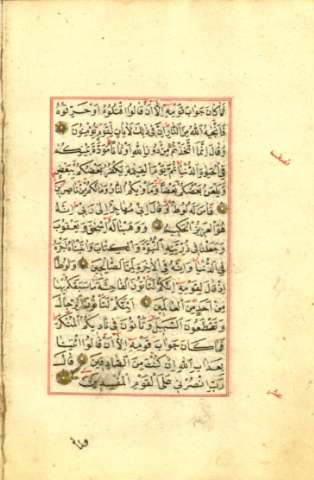 فَمَا كَانَ جَوَابَ قَوْمِهِ اِلَّا اَنْ قَالُوا اقْتُلُوهُ اَوْ حَرِّقُوهُ
فَاَنْجٰيهُ اللّٰهُ مِنَ النَّارِ اِنَّ فِي ذٰلِكَ لَاٰيَاتٍ لِقَوْمٍ يُؤْمِنُونَ
وَقَالَ اِنَّمَا اتَّخَذْتُمْ مِنْ دُونِ اللّٰهِ اَوْثَانًا مَوَدَّةَ بَيْنِكُمْ
فِي الْحَيٰوةِ الدُّنْيَا ثُمَّ يَوْمَ الْقِيٰمَةِ يَكْفُرُ بَعْضُكُمْ بِبَعْضٍ
وَيَلْعَنُ بَعْضُكُمْ بَعْضًا وَمَأْوٰيكُمُ النَّارُ وَمَا لَكُمْ مِنْ نَاصِرِينَ
فَاٰمَنَ لَهُ لُوطٌ وَقَالَ اِنِّي مُهَاجِرٌ اِلٰى رَبِّي اِنَّهُ
هُوَ الْعَزِيزُ الْحَكِيمُ وَوَهَبْنَا لَهُ اِسْحٰقَ وَيَعْقُوبَ
وَجَعَلْنَا فِي ذُرِّيَّتِهِ النُّبُوَّةَ وَالْكِتَابَ وَاٰتَيْنَاهُ اَجْرَهُ
فِي الدُّنْيَا وَاِنَّهُ فِي الْاٰخِرَةِ لَمِنَ الصَّالِحِينَ وَلُوطًا
اِذْ قَالَ لِقَوْمِهِ اِنَّكُمْ لَتَأْتُونَ الْفَاحِشَةَ مَا سَبَقَكُمْ بِهَا
مِنْ اَحَدٍ مِنَ الْعَالَمِينَ اَئِنَّكُمْ لَتَأْتُونَ الرِّجَالَ
وَتَقْطَعُونَ السَّبِيلَ وَتَأْتُونَ فِي نَادِيكُمُ الْمُنْكَرَ
فَمَا كَانَ جَوَابَ قَوْمِهِ اِلَّا اَنْ قَالُوا ائْتِنَا
بِعَذَابِ اللّٰهِ اِنْ كُنْتَ مِنَ الصَّادِقِينَ قَالَ
رَبِّ انْصُرْنِي عَلَى الْقَوْمِ الْمُفْسِدِينَ
ولما